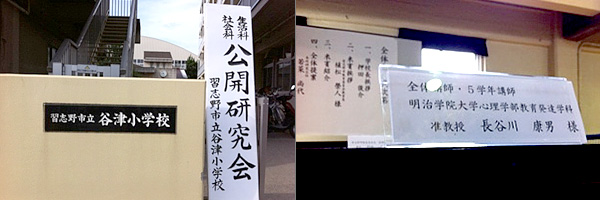 習志野市立 谷津小学校
生活科
社会科
公開研究会
習志野市立谷津小学校
一、学校長挨拶
押田 俊介
四、全体提案
全体講師・5学年講師
明治学院大学心理学部教育発達学科
准教授 長谷川 康男 様